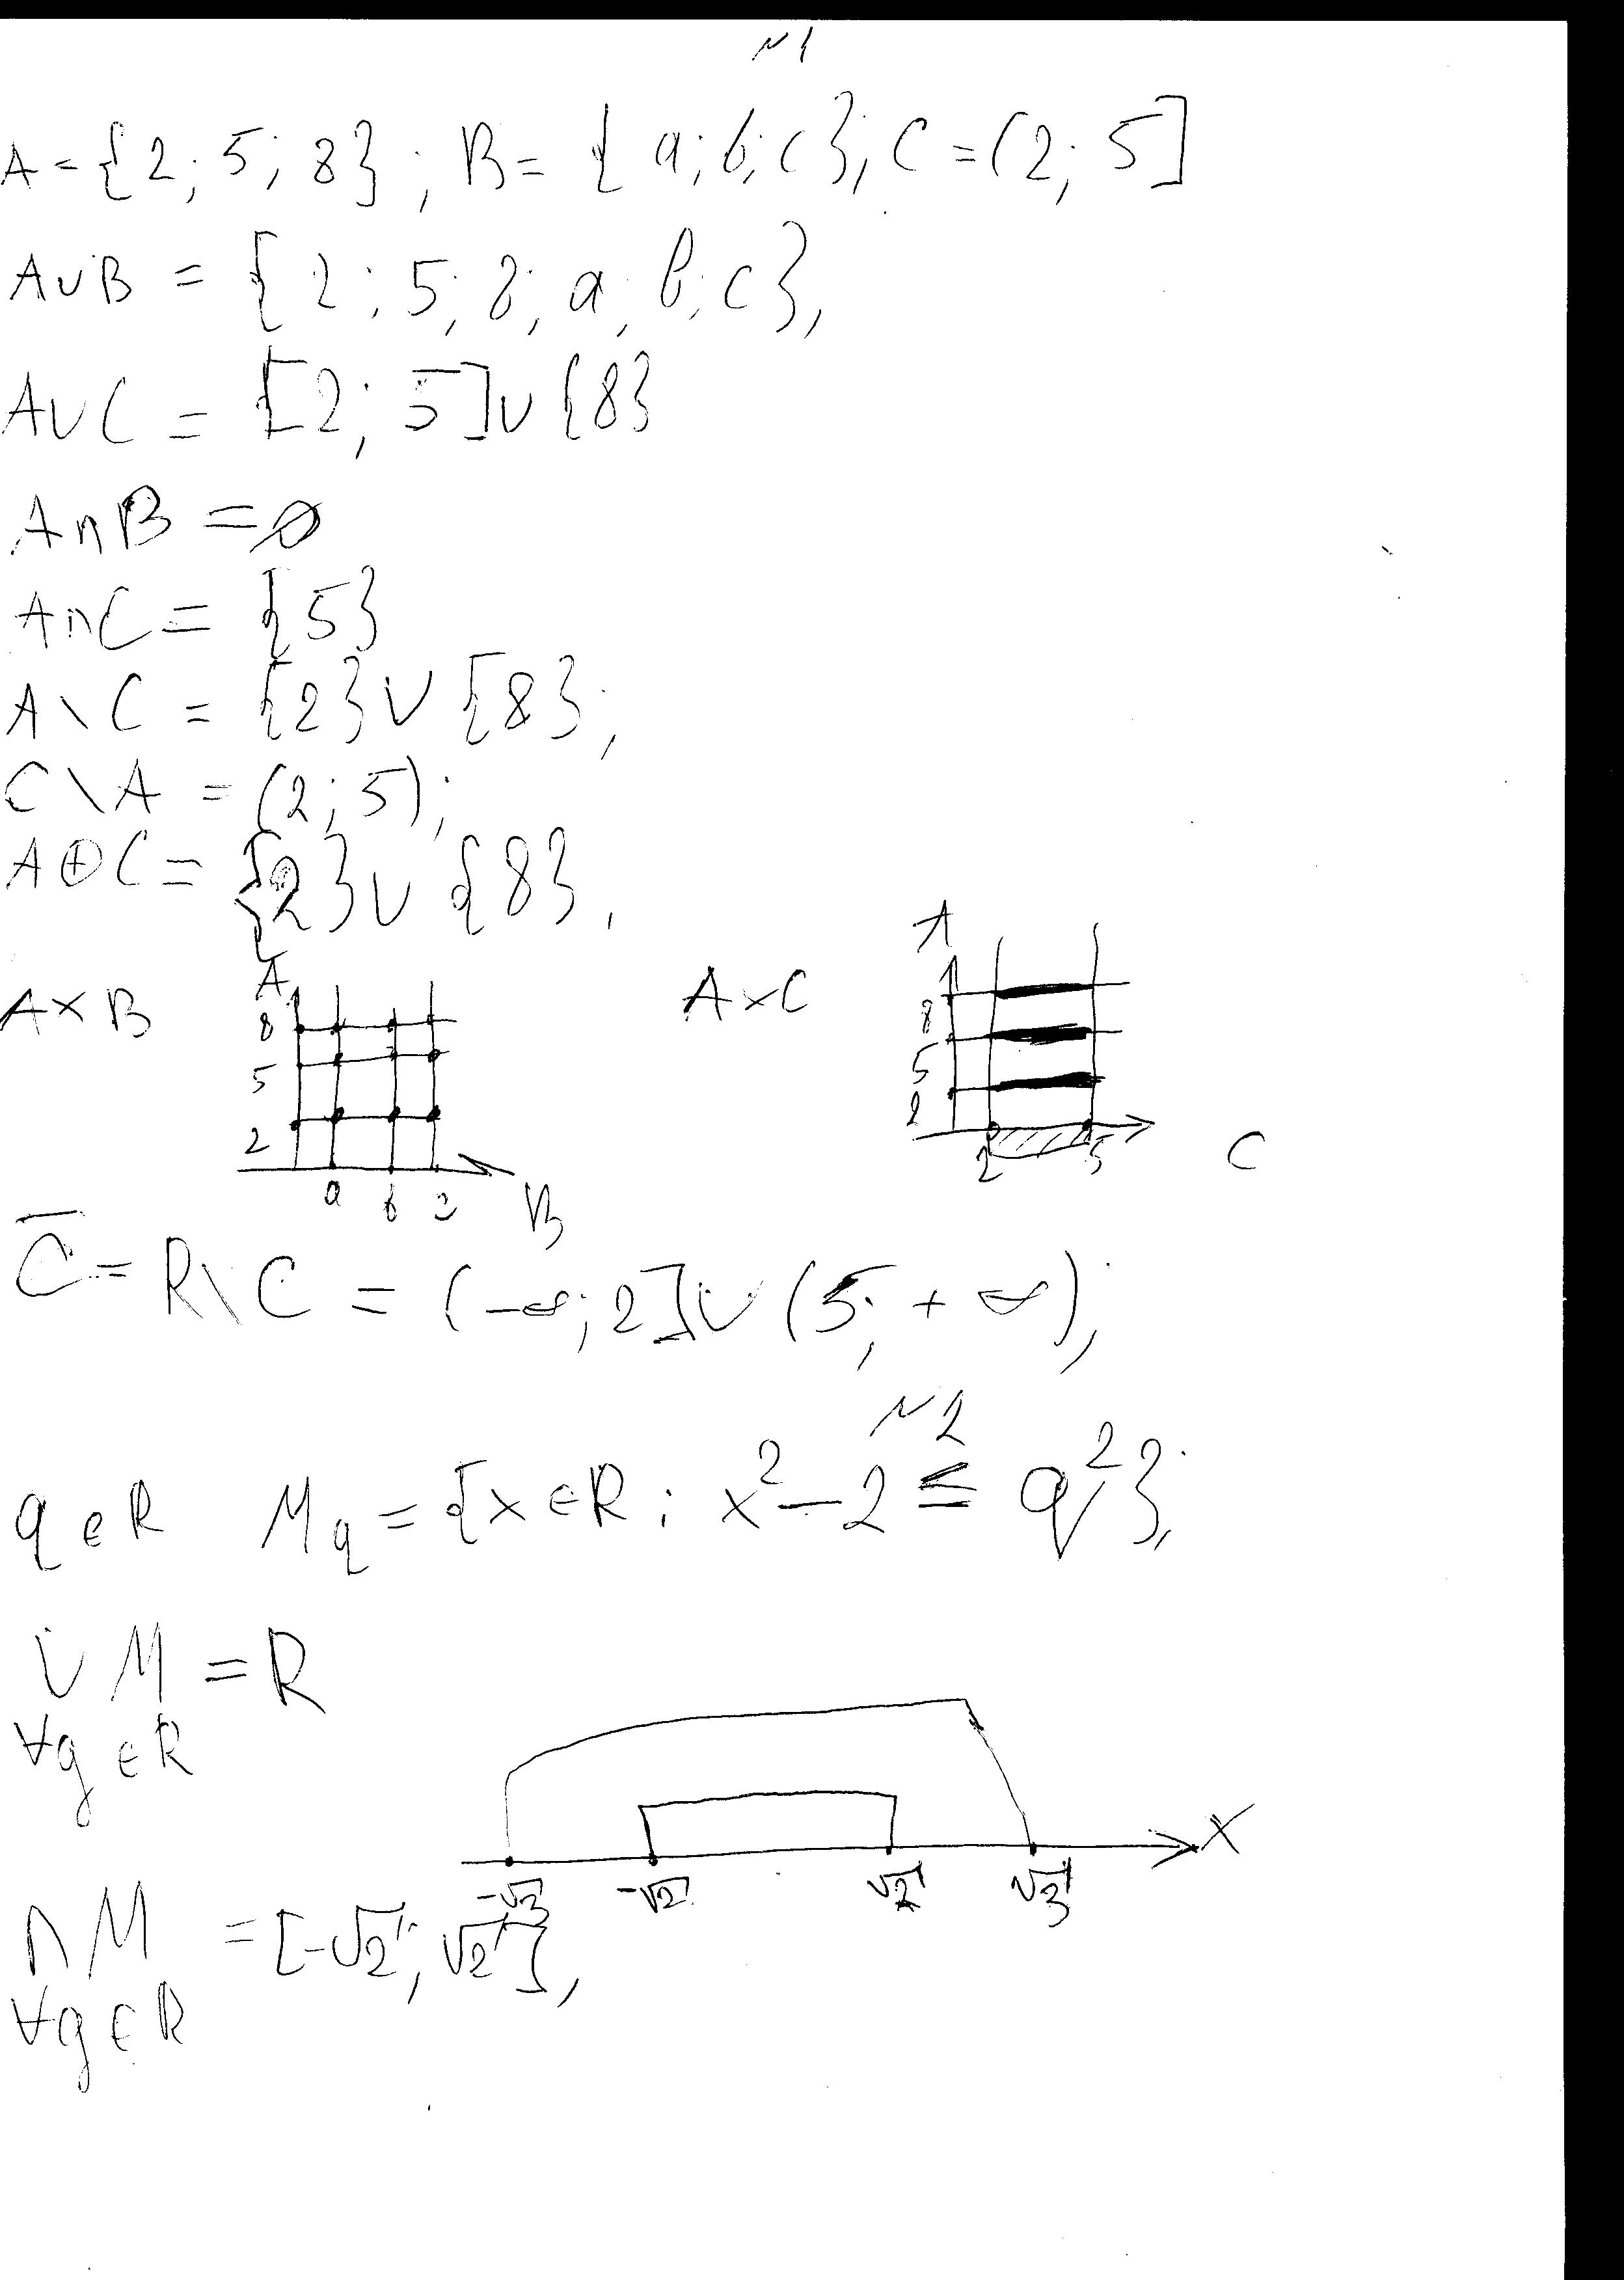 №1
A = {2; 5; 8}; B = {a; b; c}; C = (2; 5]
A∪B = {2; 5; 8; a; b; c},
A∪C = [2; 5]∪{8}
A∩B = ∅
A∩C = {5}
A\C = {2}∪{8};
C\A = (2; 5);
A⊕C = {2}∪{8},
A×B A 8 5 2 a b c B
A×C A 8 5 2 2 5 C
C̅ = R\C = (-∞; 2]∪(5; +∞);
№2
q∈R M_q = {x∈R : x² - 2 ≤ q²};
∪ M = R
∀q∈R
-√3 -√2 √2 √3 X
∩ M = [-√2; √2],
∀q∈R